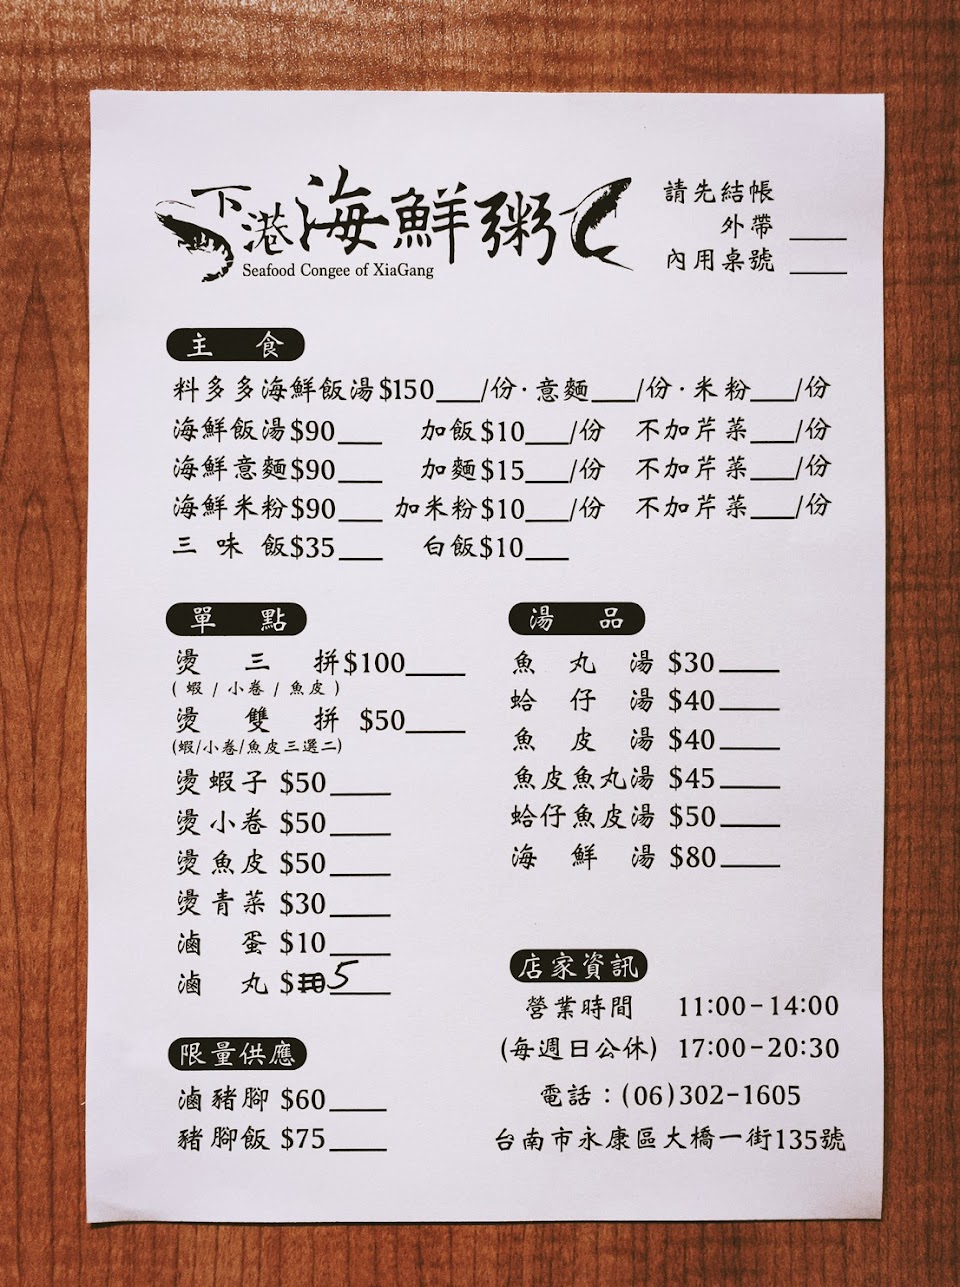 下港海鮮粥
Seafood Congee of XiaGang
請先結帳
外帶 ____
內用桌號 ____
主 食
料多多海鮮飯湯$150____/份·意麵____/份·米粉____/份
海鮮飯湯$90____ 加飯$10____/份 不加芹菜____/份
海鮮意麵$90____ 加麵$15____/份 不加芹菜____/份
海鮮米粉$90____ 加米粉$10____/份 不加芹菜____/份
三 味 飯$35____ 白飯$10____
單 點
燙 三 拼$100____
( 蝦 / 小卷 / 魚皮 )
燙 雙 拼 $50____
(蝦/小卷/魚皮三選二)
燙蝦子 $50____
燙小卷 $50____
燙魚皮 $50____
燙青菜 $30____
滷 蛋 $10____
滷 丸 $5____
限量供應
滷豬腳 $60____
豬腳飯 $75____
湯 品
魚 丸 湯 $30____
蛤 仔 湯 $40____
魚 皮 湯 $40____
魚皮魚丸湯 $45____
蛤仔魚皮湯 $50____
海 鮮 湯 $80____
店家資訊
營業時間 11:00-14:00
(每週日公休) 17:00-20:30
電話：(06)302-1605
台南市永康區大橋一街135號